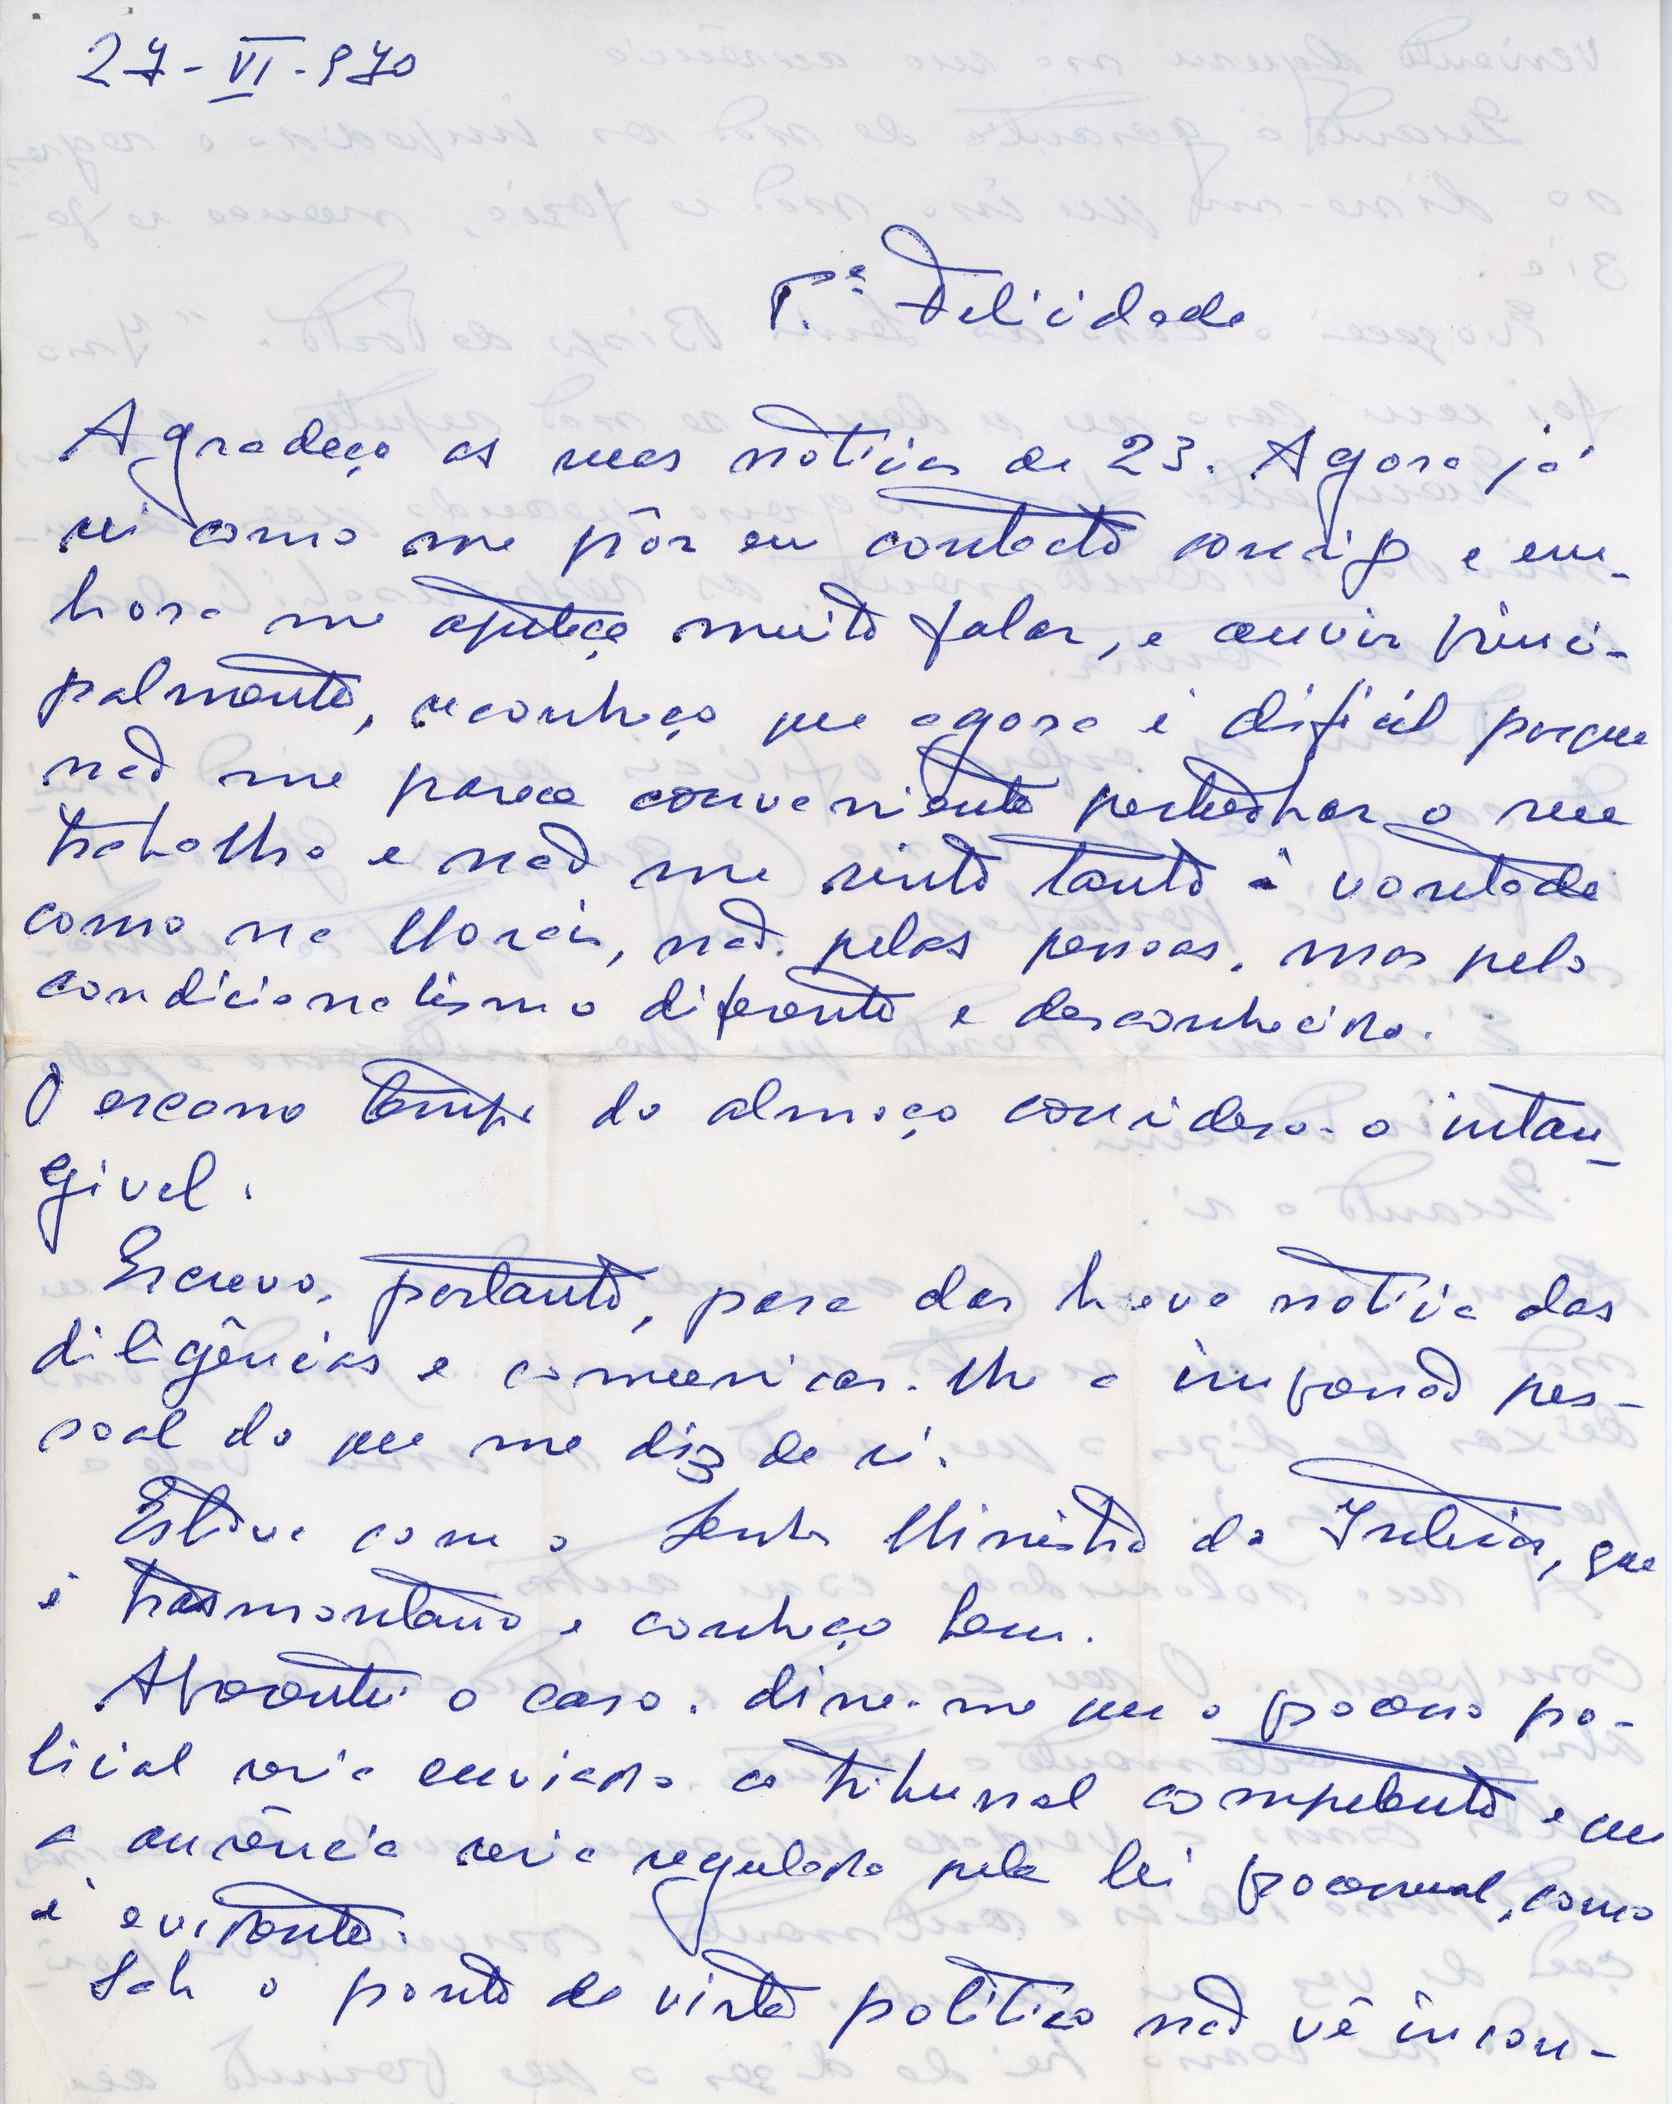 27-VI-970
P.e Felicidade
Agradeço as suas notícias de 23. Agora já
sei como me pôr em contacto consigo e em-
bora me apeteça muito falar, e ouvir princi-
palmente, reconheço que agora é difícil porque
não me parece conveniente perturbar o seu
trabalho e não me sinto tanto à vontade
como na Morais, não pelas pessoas, mas pelo
condicionalismo diferente e desconhecido.
O escasso tempo do almoço considero-o intan-
gível.
Escrevo, portanto, para dar breve notícia das
diligências e comunicar-lhe a impressão pes-
soal do que me diz de si.
Estive com o Senhor Ministro do Interior, que
é trasmontano e conheço bem.
Apresentei o caso, disse-me que o processo po-
licial seria enviado ao tribunal competente e que
a ausência seria regulada pela lei processual, como
é evidente.
Sob o ponto de vista político não vê incon-